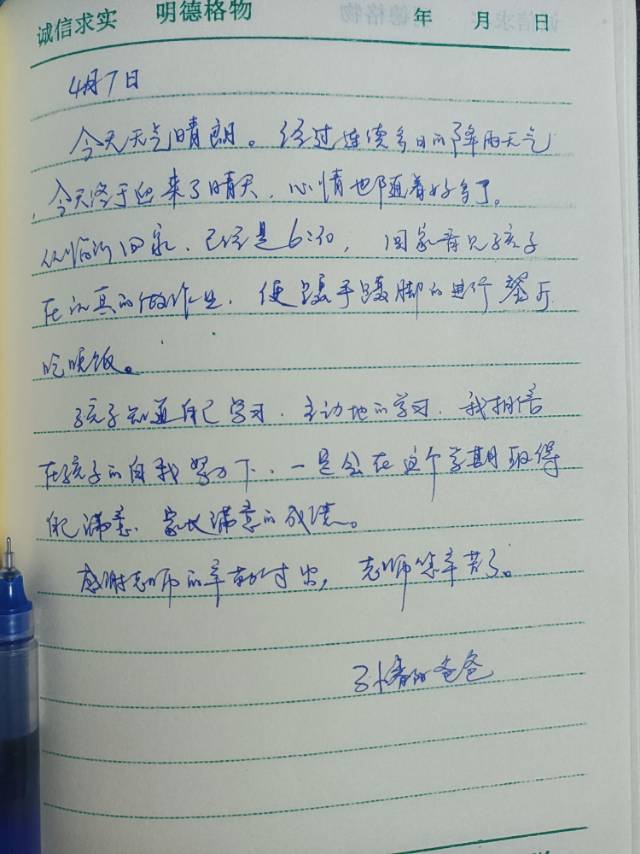 诚信求实 明德格物 年 月 日
4月7日
今天天气晴朗。经过连续多日的降雨天气
,今天终于迎来了晴天,心情也随着好多了。
从临沂回家,已经是6:30,回家看见孩子
在认真的做作业,便蹑手蹑脚的进行餐厅
吃晚饭。
孩子知道自己学习,主动地的学习,我相信
在孩子的自我努力下,一定会在这个学期取得
自己满意、家长满意的成绩。
感谢老师的辛勤付出,老师您辛苦了。
爸爸